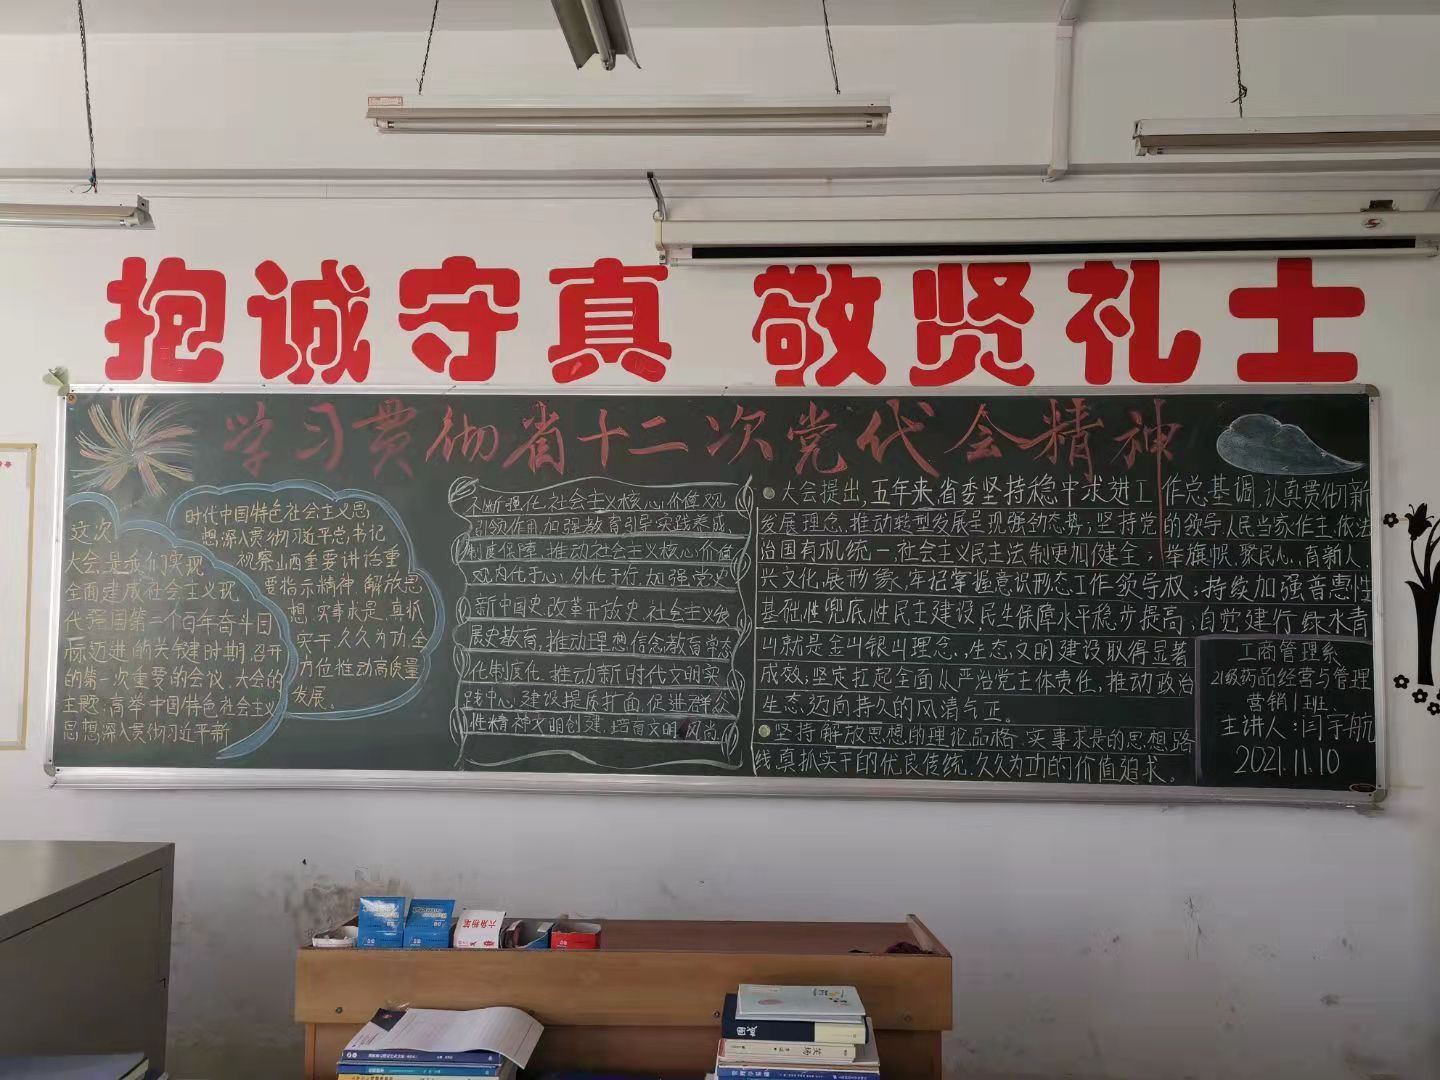 抱诚守真 敬贤礼士
学习贯彻省十二次党代会精神
这次
大会,是我们实现
全面建成社会主义现
代强国第二个百年奋斗目
标迈进的关键时期,召开
的第一次重要的会议,大会的
主题,高举中国特色社会主义
思想深入贯彻习近平新
时代中国特色社会主义思
想深入贯彻习近平总书记
视察山西重要讲话重
要指示精神,解放思
想,实事求是,真抓
实干,久久为功,全
方位推动高质量
发展。
不断强化社会主义核心价值观
引领作用,加强教育引导实践养成,
制度保障,推动社会主义核心价值
观内化于心,外化于行,加强党史
新中国史,改革开放史,社会主义发
展史教育,推动理想信念教育常态
化制度化,推动新时代文明实
践中心,建设提质扩面,促进群众
性精神文明创建,培育文明风尚
大会提出,五年来省委坚持稳中求进工作总基调,认真贯彻新
发展理念,推动转型发展呈现强劲态势;坚持党的领导人民当家作主,依法
治国有机统一社会主义民主法制更加健全;举旗帜,聚民心,育新人
兴文化,展形象,牢牢掌握意识形态工作领导权;持续加强普惠性
基础性兜底性民主建设民生保障水平稳步提高;自觉建行绿水青
山就是金山银山理念,生态文明建设取得显著
成效;坚定扛起全面从严治党主体责任,推动政治
生态,迈向持久的风清气正。
坚持解放思想的理论品格,实事求是的思想路
线,真抓实干的优良传统,久久为功的价值追求。
工商管理系
21级药品经营与管理
营销1班、
主讲人:闫宇航
2021.11.10
六角粉笔
围城